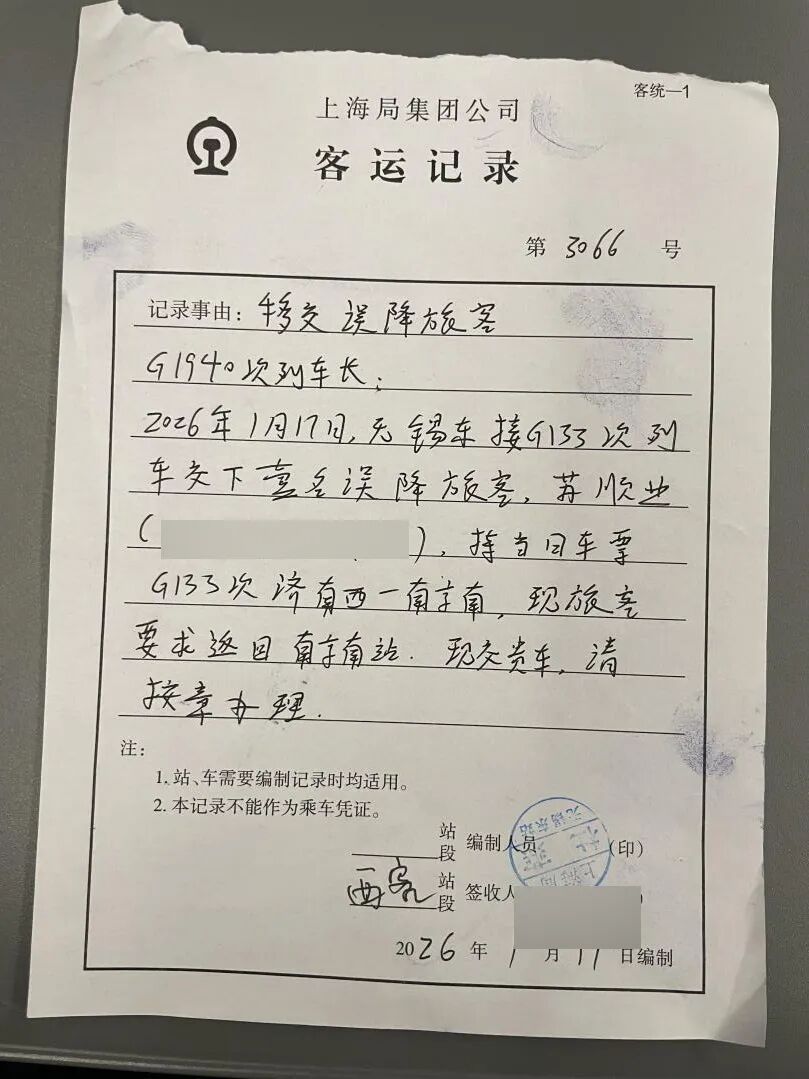 客统—1
上海局集团公司
客运记录
第 3066 号
记录事由：移交误降旅客
G1940次列车长：
2026年1月17日，无锡东接G133次列
车交下壹名误降旅客，苏顺业
（ ），持当日车票
G133次济南西—南京南，现旅客
要求返回南京南站．现交贵车，请
按章办理．
注：
1. 站、车需要编制记录时均适用。
2. 本记录不能作为乘车凭证。
站段 编制人员 （印）
西客 站段 签收人
2026 年 1 月 17 日编制
上海局
无锡东站